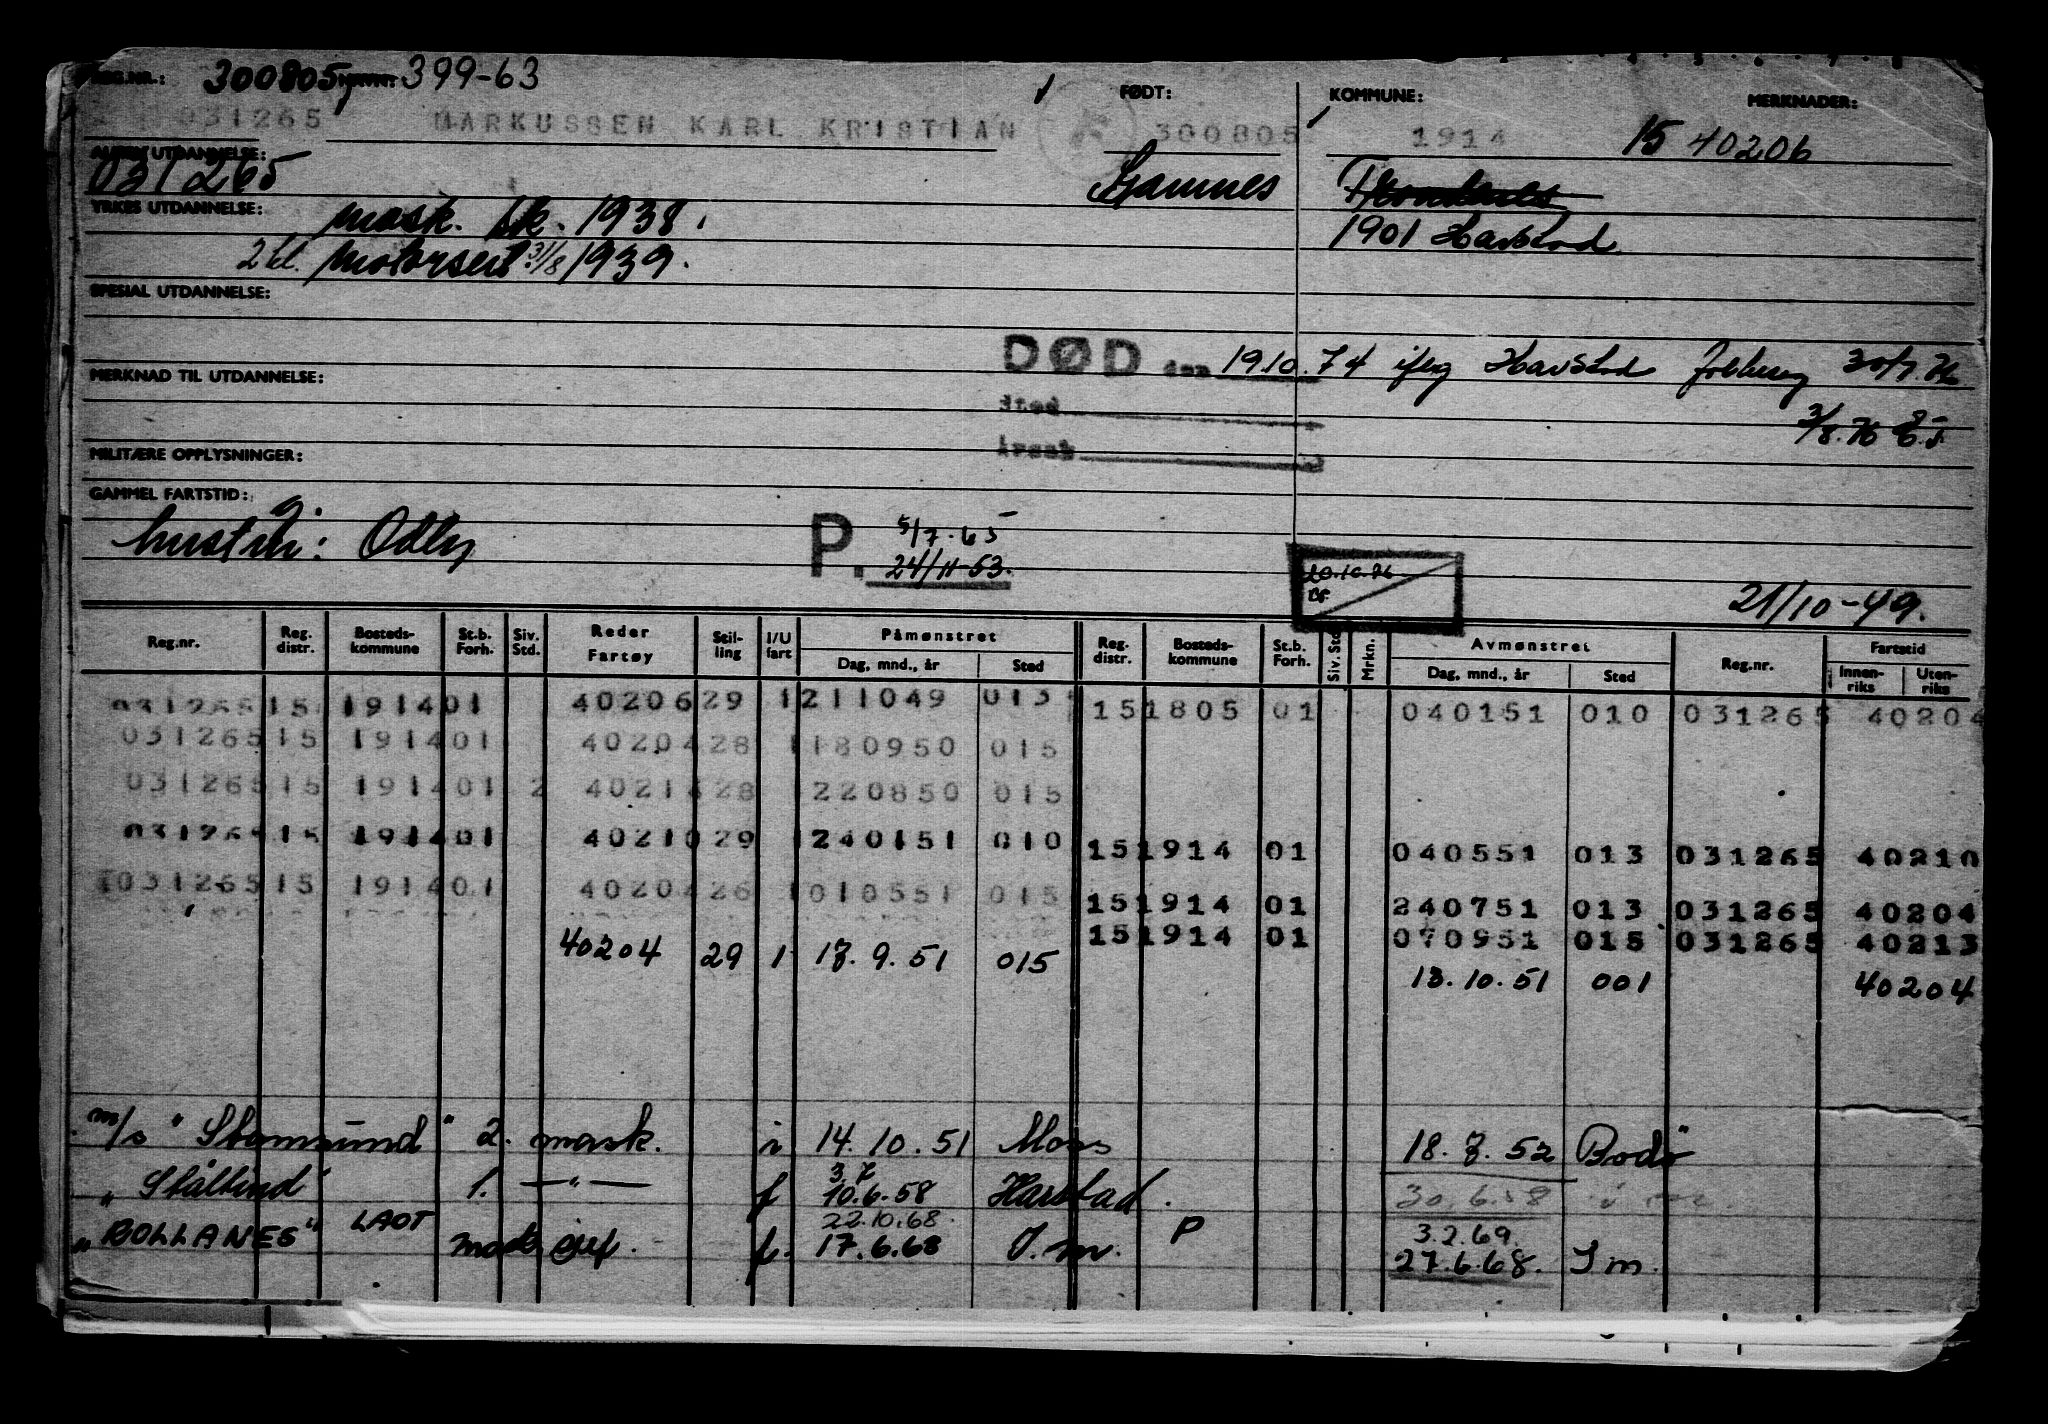 REG.NR.: 300805, 399-63 FØDT: KOMMUNE: MERKNADER:
031265 MARKUSSEN KARL KRISTIAN 300805 1914 15 40206
ALMEN UTDANNELSE:
031265
YRKES UTDANNELSE: mask. bk. 1938. 1901 Harstad
2 kl. motorsert 31/8 1939.
SPESIAL UTDANNELSE:
DØD den 19.10.74 iflg Harstad
MERKNAD TIL UTDANNELSE:
Sted
Årsak
3/8.76
MILITÆRE OPPLYSNINGER:
GAMMEL FARTSTID:
hustru: Odly P. 5/7.65
24/11-53.
20.10.76
21/10-49.
Reg.nr. Reg. distr. Bosteds-kommune St.b. Forh. Siv. Std. Reder Fartøy Stil-ling I/U fart Påmønstret Dag, mnd., år Sted Reg. distr. Bosteds-kommune St.b. Forh. Siv. Std. Mrkn. Avmønstret Dag, mnd., år Sted Reg.nr. Fartstid Innen-riks Uten-riks
031265 15 1914 01 40206 29 1 211049 013 15 1805 01 040151 010 031265 40204
031265 15 1914 01 40204 28 1 180950 015
031265 15 1914 01 2 40214 28 220850 015
031265 15 1914 01 40210 29 1 240151 010 15 1914 01 040551 013 031265 40210
031265 15 1914 01 40204 26 1 010551 015 15 1914 01 240751 013 031265 40204
15 1914 01 070951 015 031265 40213
40204 29 1 17.9.51 015 13.10.51 001 40204
m/s "Stamsund" 2. mask. i 14.10.51 Moss 18.7.52 Bodö
3.7
" Ståltind" 1. —"— f 10.6.58 Harstad. 30.6.58
22.10.68. 3.2.69.
" BOLLANES" LAOT f. 17.6.68 J.m. P 27.6.68. J m.